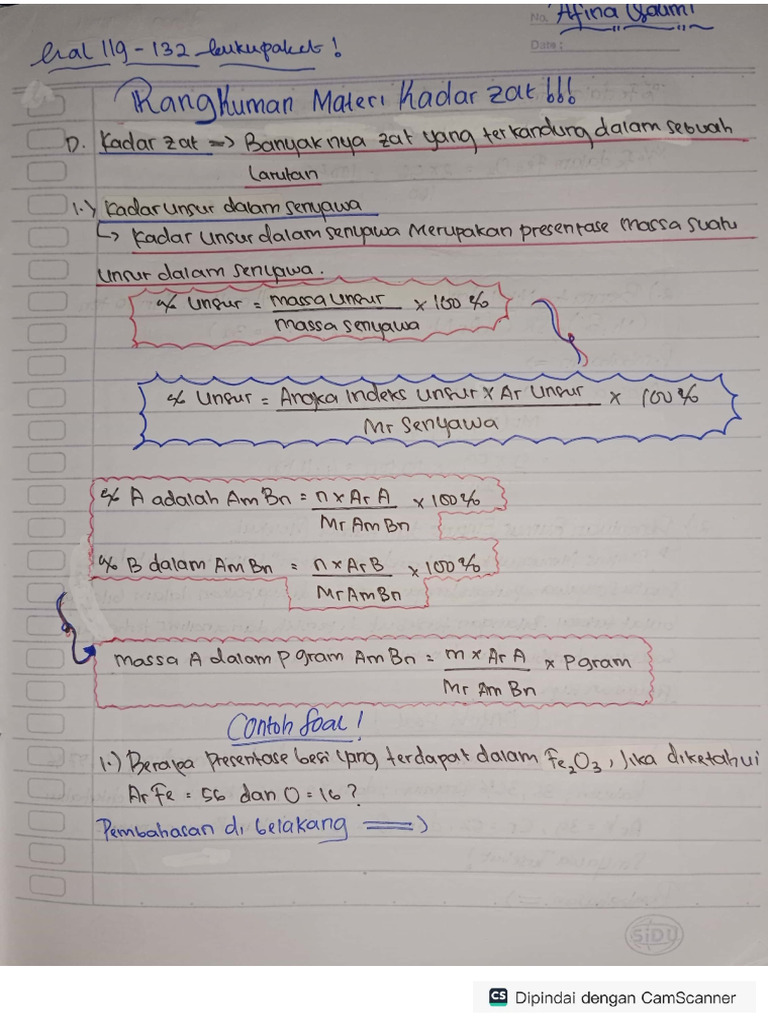 No. Afina Qaumi
Date:
Hal 119 - 132 buku paket !
Rangkuman Materi Kadar zat !!!
D. Kadar zat => Banyaknya zat yang terkandung dalam sebuah
Larutan
1.) Kadar unsur dalam senyawa
↳ Kadar unsur dalam senyawa Merupakan presentase massa suatu
unsur dalam senyawa.
% Unsur = massa unsur / massa senyawa × 100 %
% Unsur = Angka Indeks Unsur × Ar Unsur / Mr Senyawa × 100 %
% A adalah Am Bn = n × Ar A / Mr Am Bn × 100 %
% B dalam Am Bn = n × Ar B / Mr Am Bn × 100 %
massa A dalam P gram Am Bn = m × Ar A / Mr Am Bn × P gram
Contoh Soal !
1.) Berapa Presentase besi yang terdapat dalam Fe₂O₃, Jika diketahui
Ar Fe = 56 dan O = 16 ?
Pembahasan di belakang ==>
SiDU
CS Dipindai dengan CamScanner